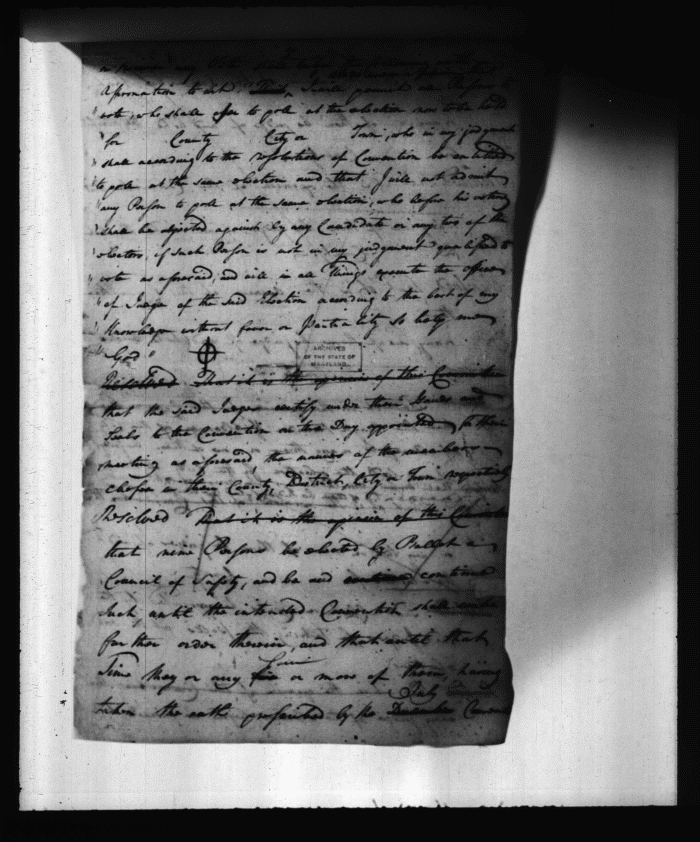 any Vote shall
Affirmation to wit I will permit all Persons to
vote, who shall offer to poll at the election now to be held
for County City or Town, who in my judgment
shall according to the resolutions of Convention be entitled
to poll at the same election and that I will not admit
any Person to poll at the same election, who before his voting
shall be objected against by any Candidate or any two of the
electors, if such Person is not in my judgment qualified to
vote as aforesaid, and will in all Things execute the office
of Judge of the said Election according to the best of my
Knowledge without favor or Partiality so help me
God"
ARCHIVES
OF THE STATE OF
MARYLAND
Resolved That it is the opinion of this Convention
that the said Judges certify under their Hands and
Seals to the Convention on the Day appointed for their
meeting as aforesaid, the names of the members
chosen in their County, District, City or Town respectively
Resolved That it is the opinion of this Convention
that nine Persons be elected by Ballot a
Council of Safety, and be and continue
such, until the intended Convention shall
further order therein, and that until that
Time they or any five or more of them, having
July
taken the oath prescribed by the December